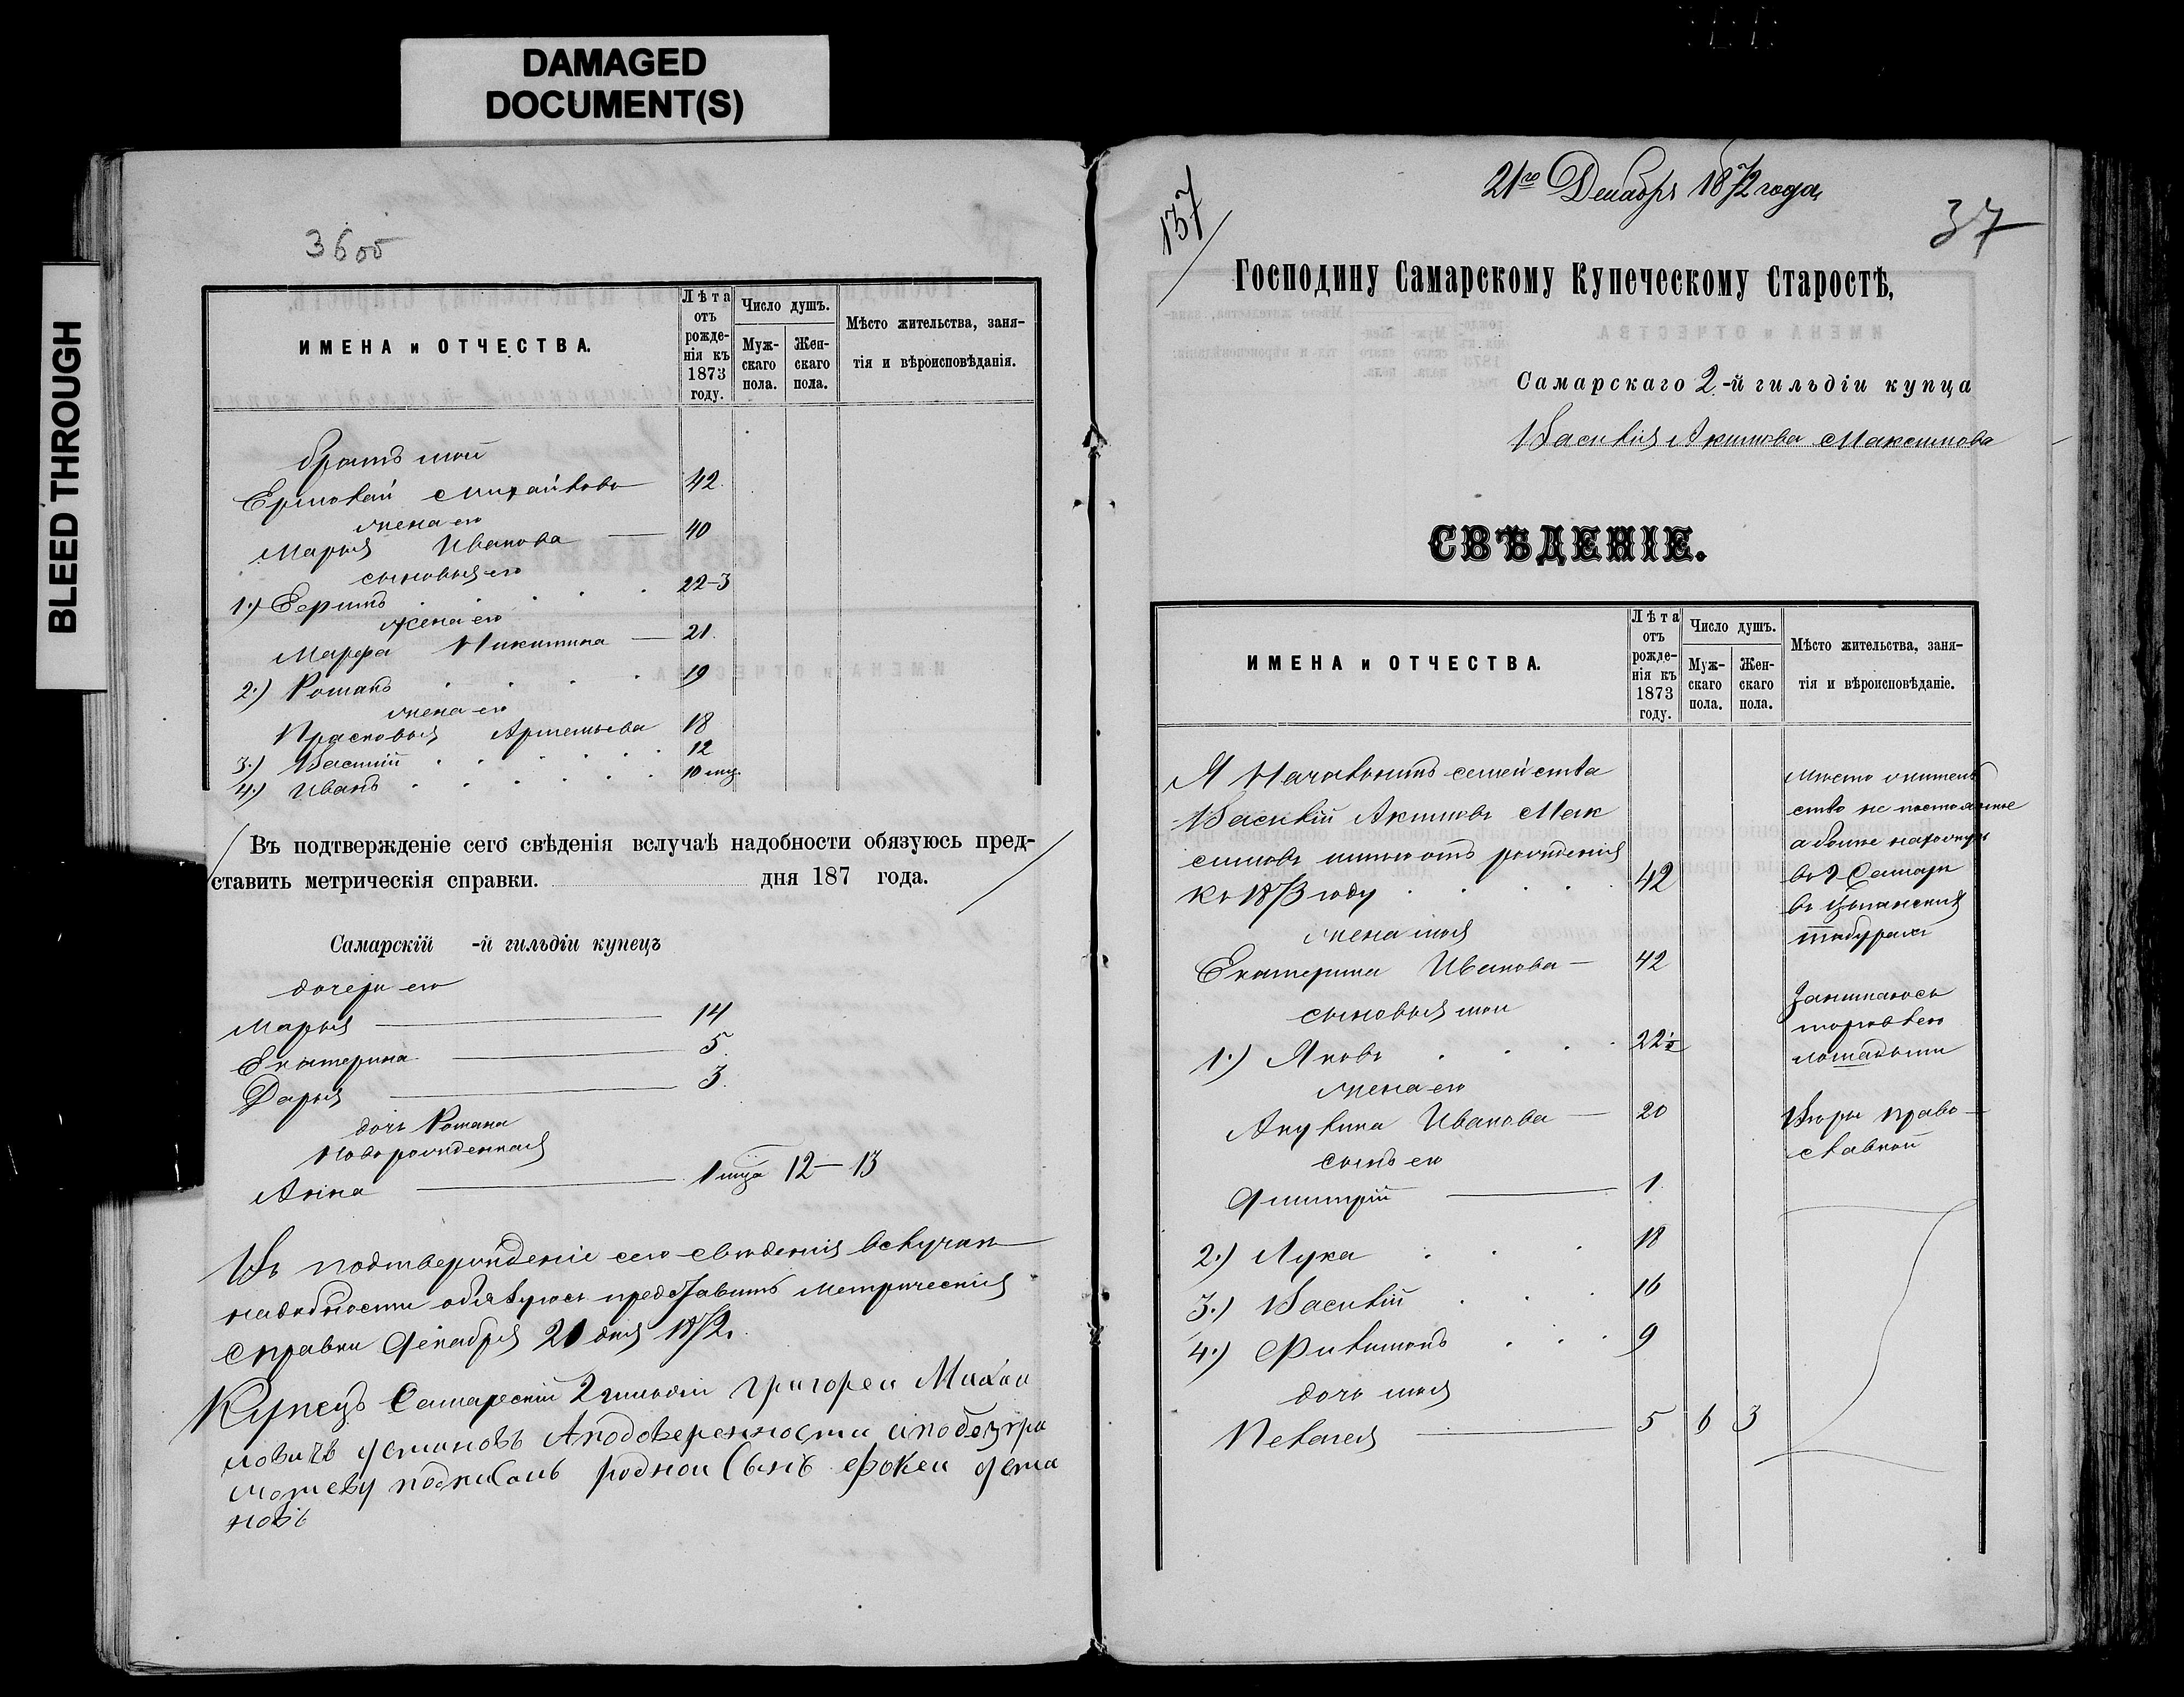 DAMAGED
DOCUMENT(S)
BLEED THROUGH
36 об
ИМЕНА и ОТЧЕСТВА.
Лѣта отъ рожденія къ 1873 году.
Число душъ.
Мужскаго пола.
Женскаго пола.
Мѣсто жительства, занятія и вѣроисповѣданія.
братъ мой
Ермолай Михайловъ 42
жена его
Марья Иванова — 40
сыновья его
1.) Ефимъ 22-3
жена его
Марфа Никитина — 21.
2.) Романъ 19
жена его
Прасковья Артемьева 18
3.) Василій 12
4.) Иванъ 10 мц.
Въ подтвержденіе сего свѣденія вслучаѣ надобности обязуюсь пред-
ставить метрическія справки. дня 187 года.
Самарскій -й гильдіи купецъ
дочери его
Марья — 14
Екатерина — 5.
Дарья — 3.
дочь Романа
Новорожденная
Анна — 1 мца 12 — 13
Въ подтвержденіе сего свѣденія вслучаѣ
надобности обязуюсь представить метрическія
справки Декабря 21 дня 1872.
Купецъ Самарскій 2 гильдіи Григореи Михаи
ловичъ
подписалъ родной Сынъ Фокеи
новъ
137
21го Декабря 1872 года
37
Господину Самарскому Купеческому Старостѣ,
Самарскаго 2-й гильдіи купца
Василія Акимова Максимова
СВѢДЕНІЕ.
ИМЕНА и ОТЧЕСТВА.
Лѣта отъ рожденія къ 1873 году.
Число душъ.
Мужскаго пола.
Женскаго пола.
Мѣсто жительства, занятія и вѣроисповѣданіе.
Я Начальникъ семейства
Василій Акимовъ Мак
симовъ имѣю отъ рожденія
къ 1873 году 42
жена моя
Екатерина Иванова — 42
сыновья мои
1.) Яковъ 22½
жена его
Акулина Иванова — 20
сынъ его
Дмитрій — 1
2.) Лука 18
3.) Василій 16
4.) Филимонъ 9
дочь моя
Пелагея — 5 6 3
Мѣсто житель
ство не постоянное
а болѣе нахожусь
въ г Самарѣ
въ Цыганскихъ
таборахъ
Занимаюсь
торговлею
лошадьми
Вѣры право-
славной